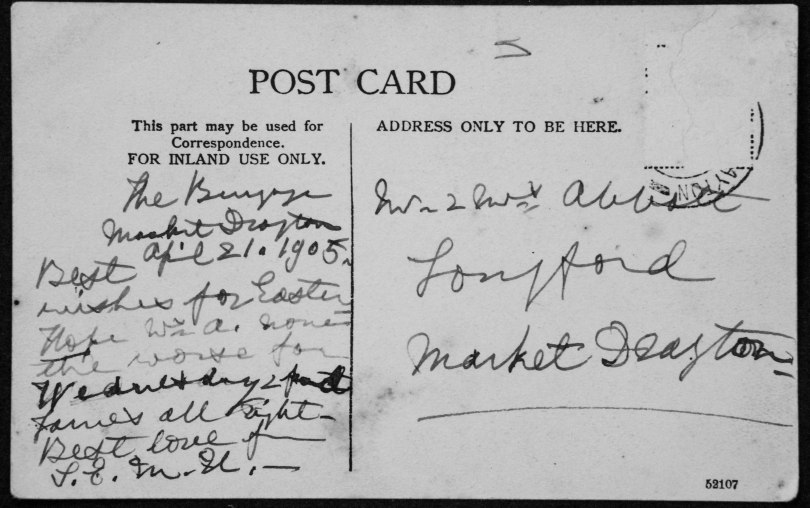 POST CARD
This part may be used for
Correspondence.
FOR INLAND USE ONLY.
ADDRESS ONLY TO BE HERE.
The
Market Drayton
April 21. 1905.
Best
wishes for Easter
Hope Mrs A. none
the worse for
Wednesday &
James all right
Best love fm
Mr & Mrs Abbott
Longford
Market Drayton
52107